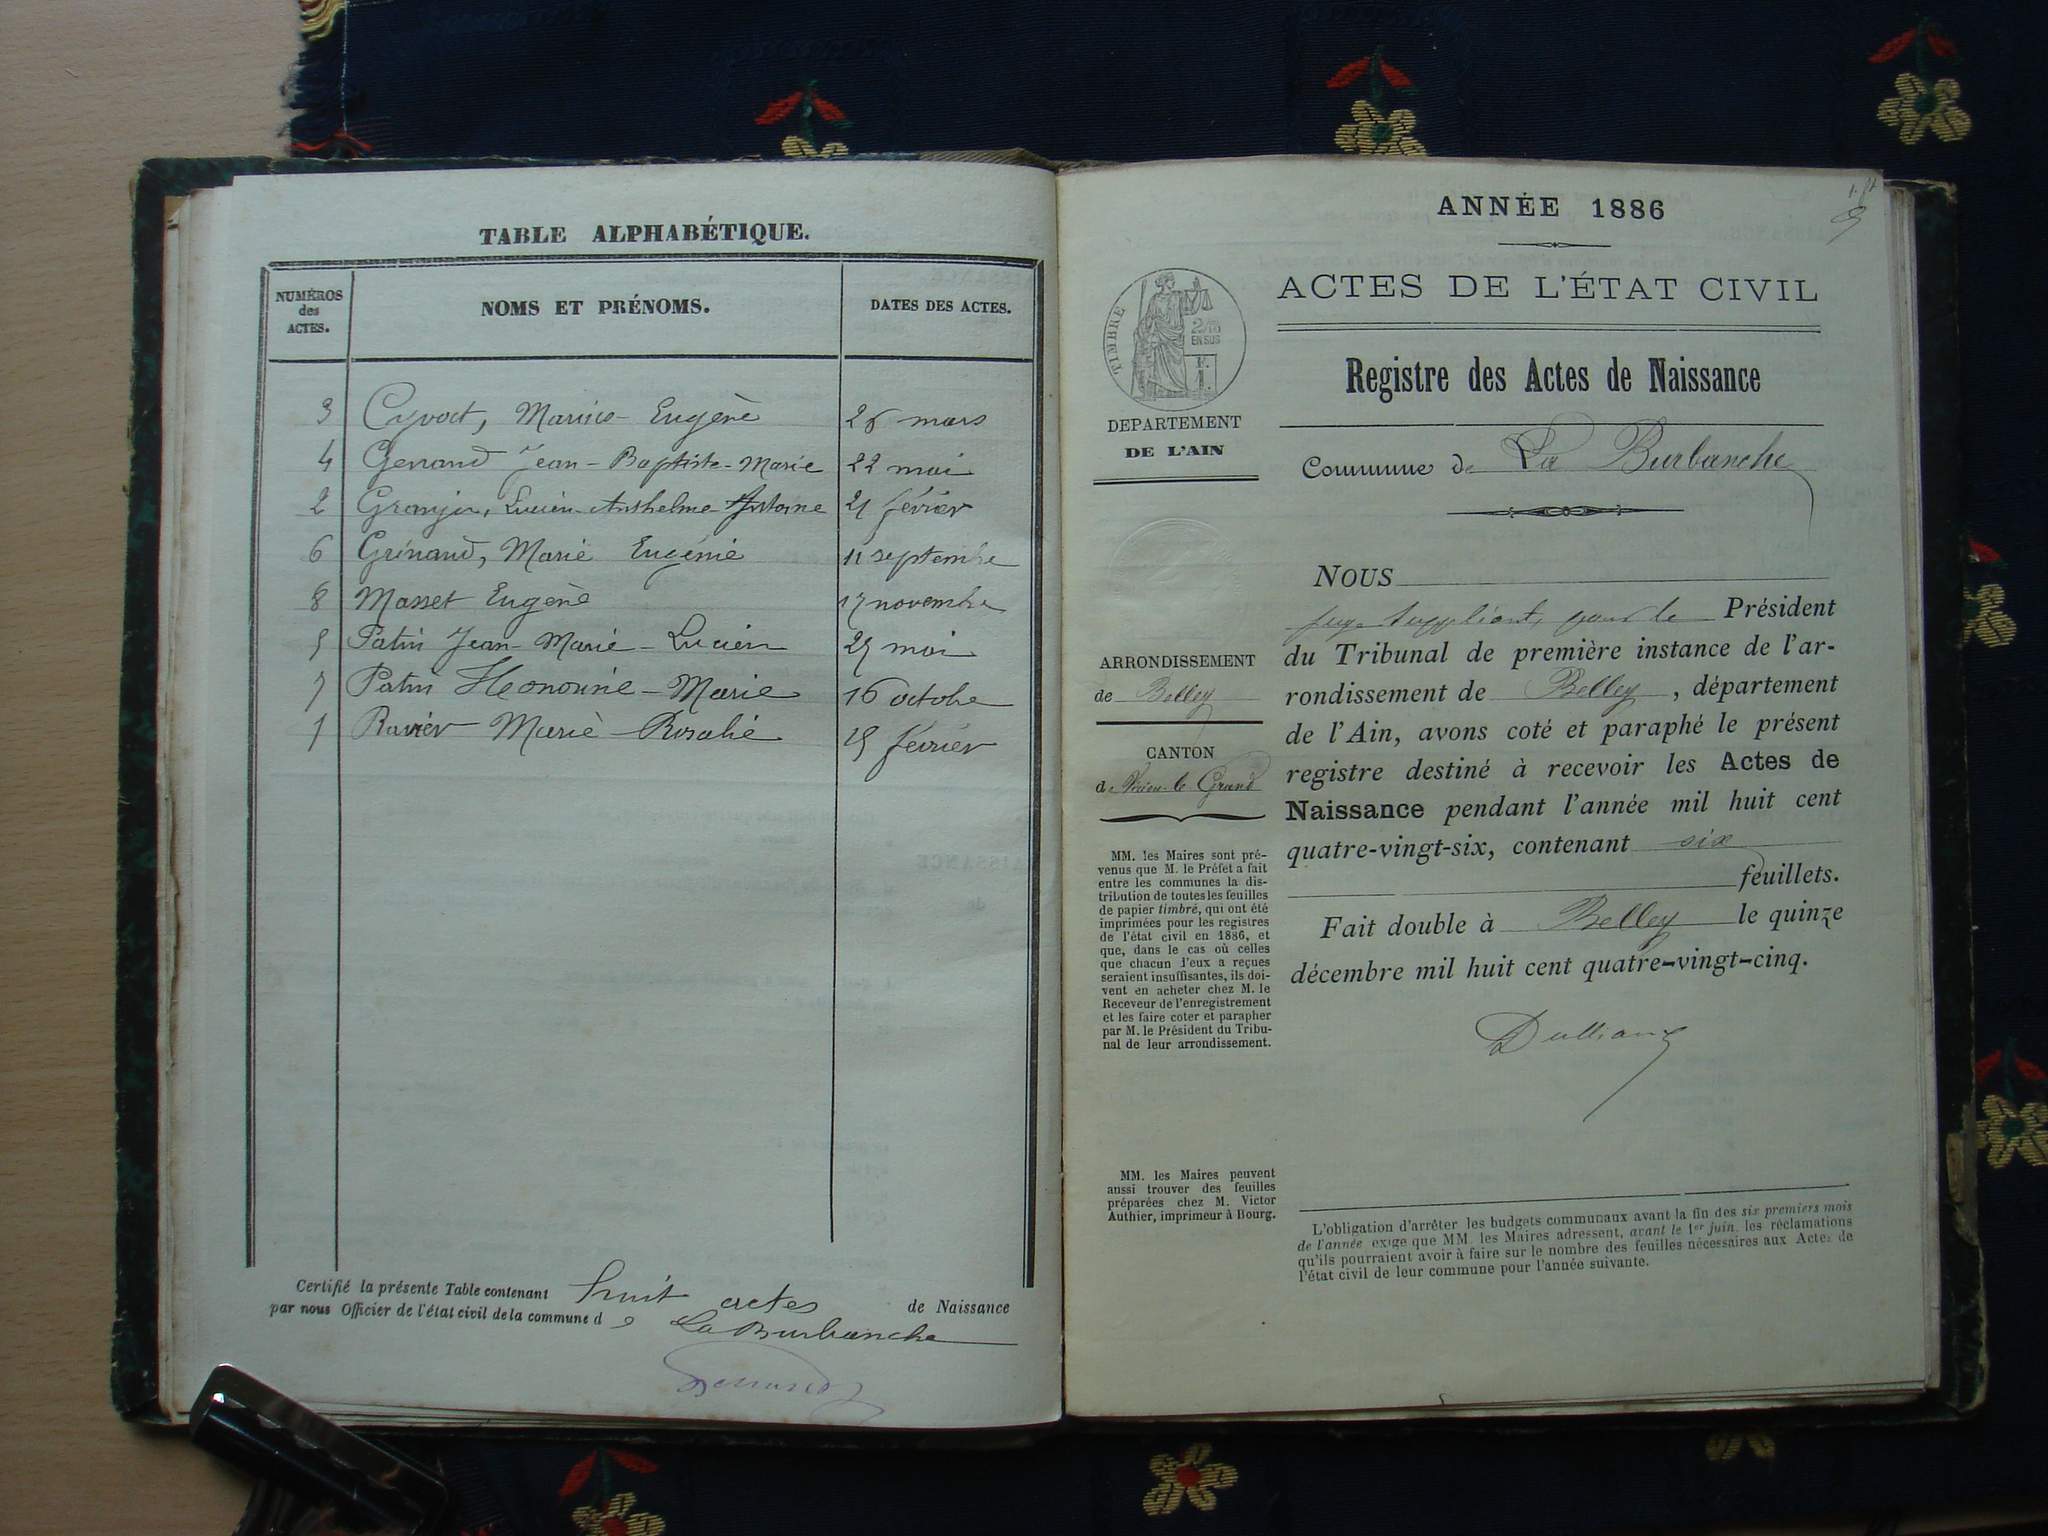 TABLE ALPHABÉTIQUE.
NUMÉROS des ACTES.
NOMS ET PRÉNOMS.
DATES DES ACTES.
3 Marius-Eugène 26 mars
4 Gerrand Jean-Baptiste-Marie 22 mai
2 Lucien-Anthelme-Antoine 21 février
6 Grinand, Marie Eugénie 11 septembre
8 Masset Eugène 17 novembre
5 Patin Jean-Marie-Lucien 25 mai
7 Patin Honorine-Marie 16 octobre
1 Ravier Marie-Rosalie 15 février
Certifié la présente Table contenant huit actes de Naissance
par nous Officier de l'état civil de la commune de La Burbanche
ANNÉE 1886
ACTES DE L'ÉTAT CIVIL
Registre des Actes de Naissance
Commune de La Burbanche
TIMBRE
2/10
EN SUS
F.
1.
DEPARTEMENT
DE L'AIN
ARRONDISSEMENT
de Belley
CANTON
de Virieu-le Grand
MM. les Maires sont pré-
venus que M. le Préfet a fait
entre les communes la dis-
tribution de toutes les feuilles
de papier timbré, qui ont été
imprimées pour les registres
de l'état civil en 1886, et
que, dans le cas où celles
que chacun d'eux a reçues
seraient insuffisantes, ils doi-
vent en acheter chez M. le
Receveur de l'enregistrement
et les faire coter et parapher
par M. le Président du Tribu-
nal de leur arrondissement.
MM. les Maires peuvent
aussi trouver des feuilles
préparées chez M. Victor
Authier, imprimeur à Bourg.
NOUS
juge suppléant, pour le Président
du Tribunal de première instance de l'ar-
rondissement de Belley, département
de l'Ain, avons coté et paraphé le présent
registre destiné à recevoir les Actes de
Naissance pendant l'année mil huit cent
quatre-vingt-six, contenant six
feuillets.
Fait double à Belley le quinze
décembre mil huit cent quatre-vingt-cinq.
L'obligation d'arrêter les budgets communaux avant la fin des six premiers mois
de l'année exige que MM. les Maires adressent, avant le 1er juin, les réclamations
qu'ils pourraient avoir à faire sur le nombre des feuilles nécessaires aux Actes de
l'état civil de leur commune pour l'année suivante.